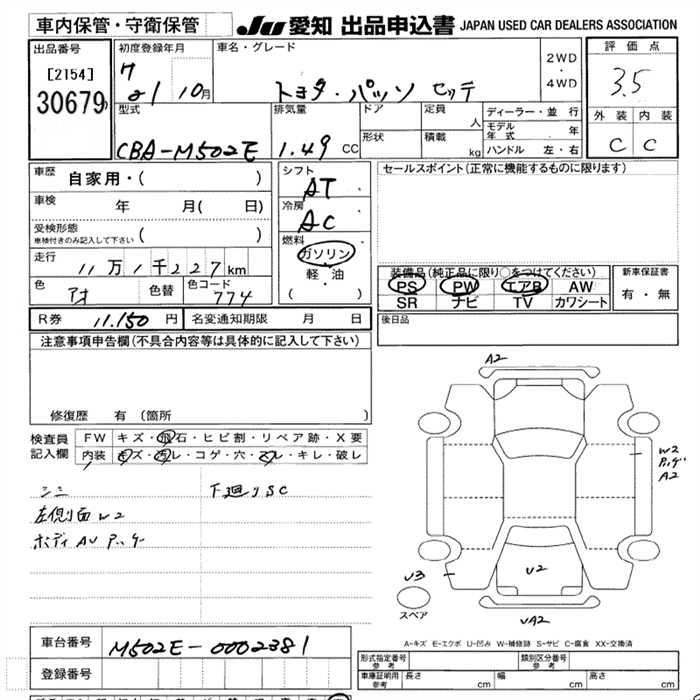 車内保管・守衛保管
JU 愛知 出品申込書 JAPAN USED CAR DEALERS ASSOCIATION
出品番号
[2154]
30679
初度登録年月
21 10月
車名・グレード
トヨタ・パッソ セッテ
2WD
・
4WD
評価点
3.5
外装 内装
C C
型式
CBA-M502E
排気量
1.49 CC
ドア
定員
人
形状
積載
kg
ディーラー・並行
モデル年式 年
ハンドル 左・右
車歴
自家用・( )
車検 年 月( 日)
受検形態
車検付きのみ記入して下さい ( )
走行
11万1千227km
色
アオ
色替
色コード
774
シフト
AT
冷房
AC
燃料
ガソリン
軽・油
( ・ )
セールスポイント(正常に機能するものに限ります)
装備品(純正品に限り○をつけてください)
PS PW エアB AW
SR ナビ TV カワシート
新車保証書
有・無
R券 11.150 円
名変通知期限 月 日
後日品
注意事項申告欄(不具合内容等は具体的に記入して下さい)
修復歴 有 (箇所 )
検査員
記入欄
FW キズ・飛石・ヒビ割・リペア跡・X要
内装 キズ・汚レ・コゲ・穴・スレ・キレ・破レ
シミ
下廻りSC
左側面 W2
ボディ AU アッチ
A2
W2
アッチ
A2
U3
U2
UA2
スペア
A-キズ E-エクボ U-凹み W-補修跡 S-サビ C-腐食 XX-交換済
車台番号
M502E-0002381
登録番号
形式指定番号
参考
類別区分番号
参考
車庫証明用
参考
長さ cm
幅 cm
高さ cm